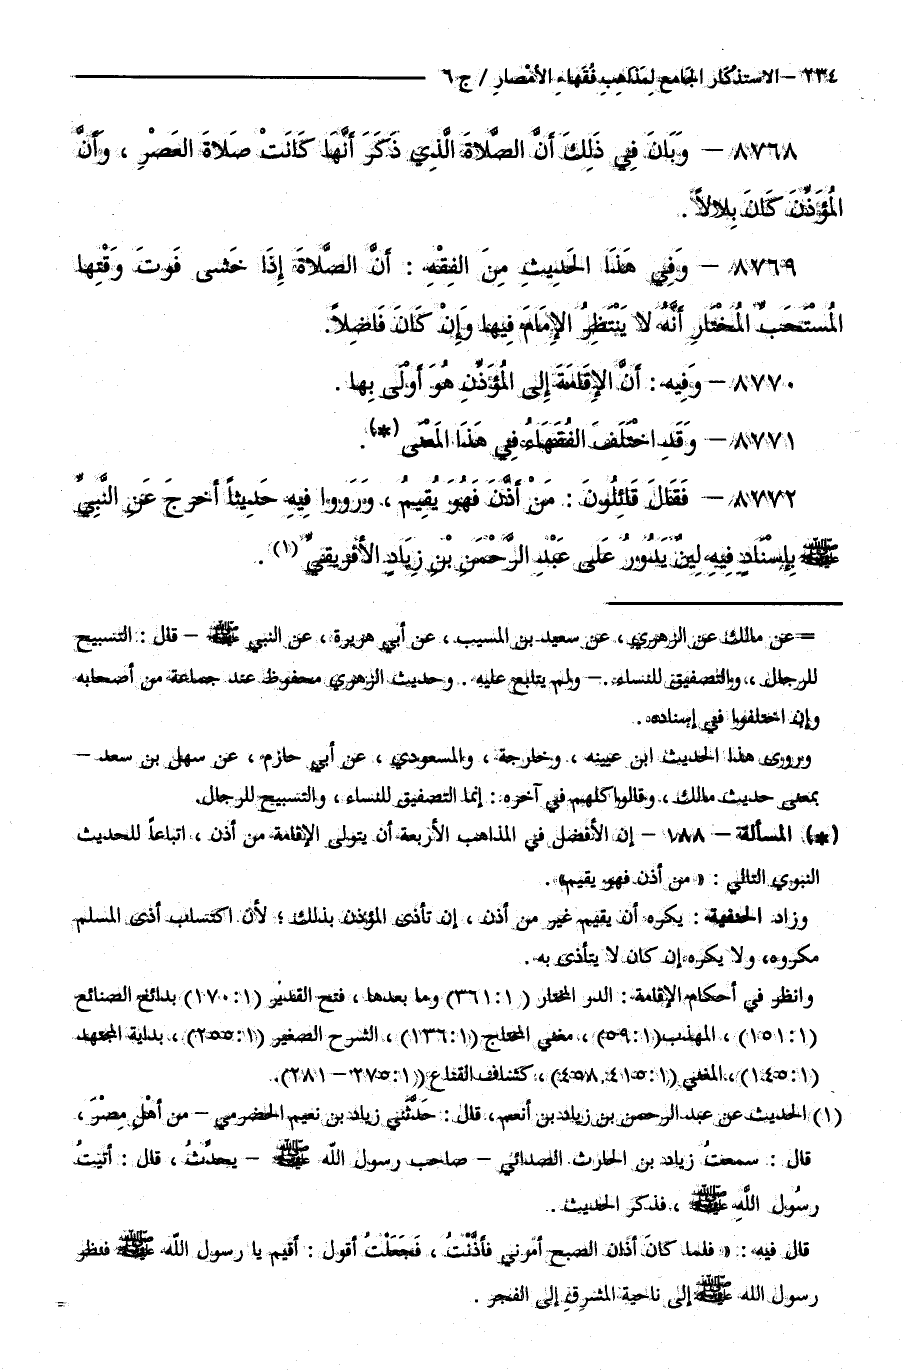 ٢٣٤ – الاستذكار الجامع لِمَذاهِبِ فُقَهاءِ الأمْصارِ / ج ٦
٨٧٦٨ – وَبَانَ فِي ذَلِكَ أَنَّ الصَّلَاةَ الَّذِي ذَكَرَ أَنَّهَا كَانَتْ صَلَاةَ العَصْرِ ، وَأَنَّ
المُؤَذِّنَ كَانَ بِلَالاً .
٨٧٦٩ – وَفِي هَذَا الحَدِيثِ مِنَ الفِقْهِ : أَنَّ الصَّلَاةَ إِذَا خَشى فَوتَ وَقْتِها
المُسْتَحَبِّ المُخْتَارِ أَنَّهُ لا يَنْتَظِرُ الإِمَامَ فِيها وَإِنْ كَانَ فَاضِلاً.
٨٧٧٠ – وَفِيه : أَنَّ الإِقَامَةَ إِلى المُؤَذِّنِ هُوَ أَوْلَى بِها .
٨٧٧١ – وَقَدِ اخْتَلَفَ الفُقَهَاءُ فِي هَذَا المَعْنَى (*) .
٨٧٧٢ – فَقَالَ قَائِلُونَ : مَنْ أَذَّنَ فَهُوَ يُقِيمُ ، وَرَوَوا فِيهِ حَدِيثاً أخرجَ عَنِ النَّبِيِّ
ﷺ بِإِسْنَادٍ فِيهِ لِينٌ يَدُورُ عَلى عَبْدِ الرَّحْمَنِ بْنِ زِيَادِ الأَفْرِيقِيِّ (١) .
= عن مالك عن الزهري ، عن سعيد بن المسيب ، عن أبي هريرة ، عن النبي ﷺ – قال : التسبيح
للرجال ، والتصفيق للنساء . – ولم يتابع عليه . وحديث الزهري محفوظ عند جماعة من أصحابه
وإن اختلفوا في إسناده .
ويروى هذا الحديث ابن عيينه ، وخارجة ، والمسعودي ، عن أبي حازم ، عن سهل بن سعد –
بمعنى حديث مالك ، وقالوا كلهم في آخره : إنما التصفيق للنساء ، والتسبيح للرجال.
(*) المسألة – ١٨٨ – إن الأفضل في المذاهب الأربعة أن يتولى الإقامة من أذن ، اتباعاً للحديث
النبوي التالي : « من أذن فهو يقيم» .
وزاد الحنفية : يكره أن يقيم غير من أذن ، إن تأذى المؤذن بذلك ؛ لأن اكتساب أذى المسلم
مكروه، ولا يكره إن كان لا يتأذى به .
وانظر في أحكام الإقامة : الدر المختار ( ١ : ٣٦١) وما بعدها ، فتح القدير (١ : ١٧٠) بدائع الصنائع
(١ : ١٥١) ، المهذب (١ : ٥٩) ، مغني المحتاج (١ : ١٣٦) ، الشرح الصغير (١ : ٢٥٥) ، بداية المجتهد
(١ : ١٤٥) ، المغني (١ : ٤١٥، ٤٥٨) ، كشاف القناع (١ : ٢٧٥ – ٢٨١).
(١) الحديث عن عبد الرحمن بن زياد بن أنعم، قال : حَدَّثَني زياد بن نعيم الحضرمي – من أهْلِ مِصْرَ ،
قال : سمعتُ زياد بن الحارث الصدائي – صاحب رسول اللّه ﷺ – يحدِّثُ ، قال : أتيتُ
رسُول اللَّهِ ﷺ ، فذكر الحديث .
قال فيه : « فلما كانَ أذان الصبح أمرني فأذَّنْتُ ، فَجَعَلْتُ أقول : أقيم يا رسول اللّه ﷺ فنظر
رسول الله ﷺ إلى ناحية المشرقِ إلى الفجر .
=